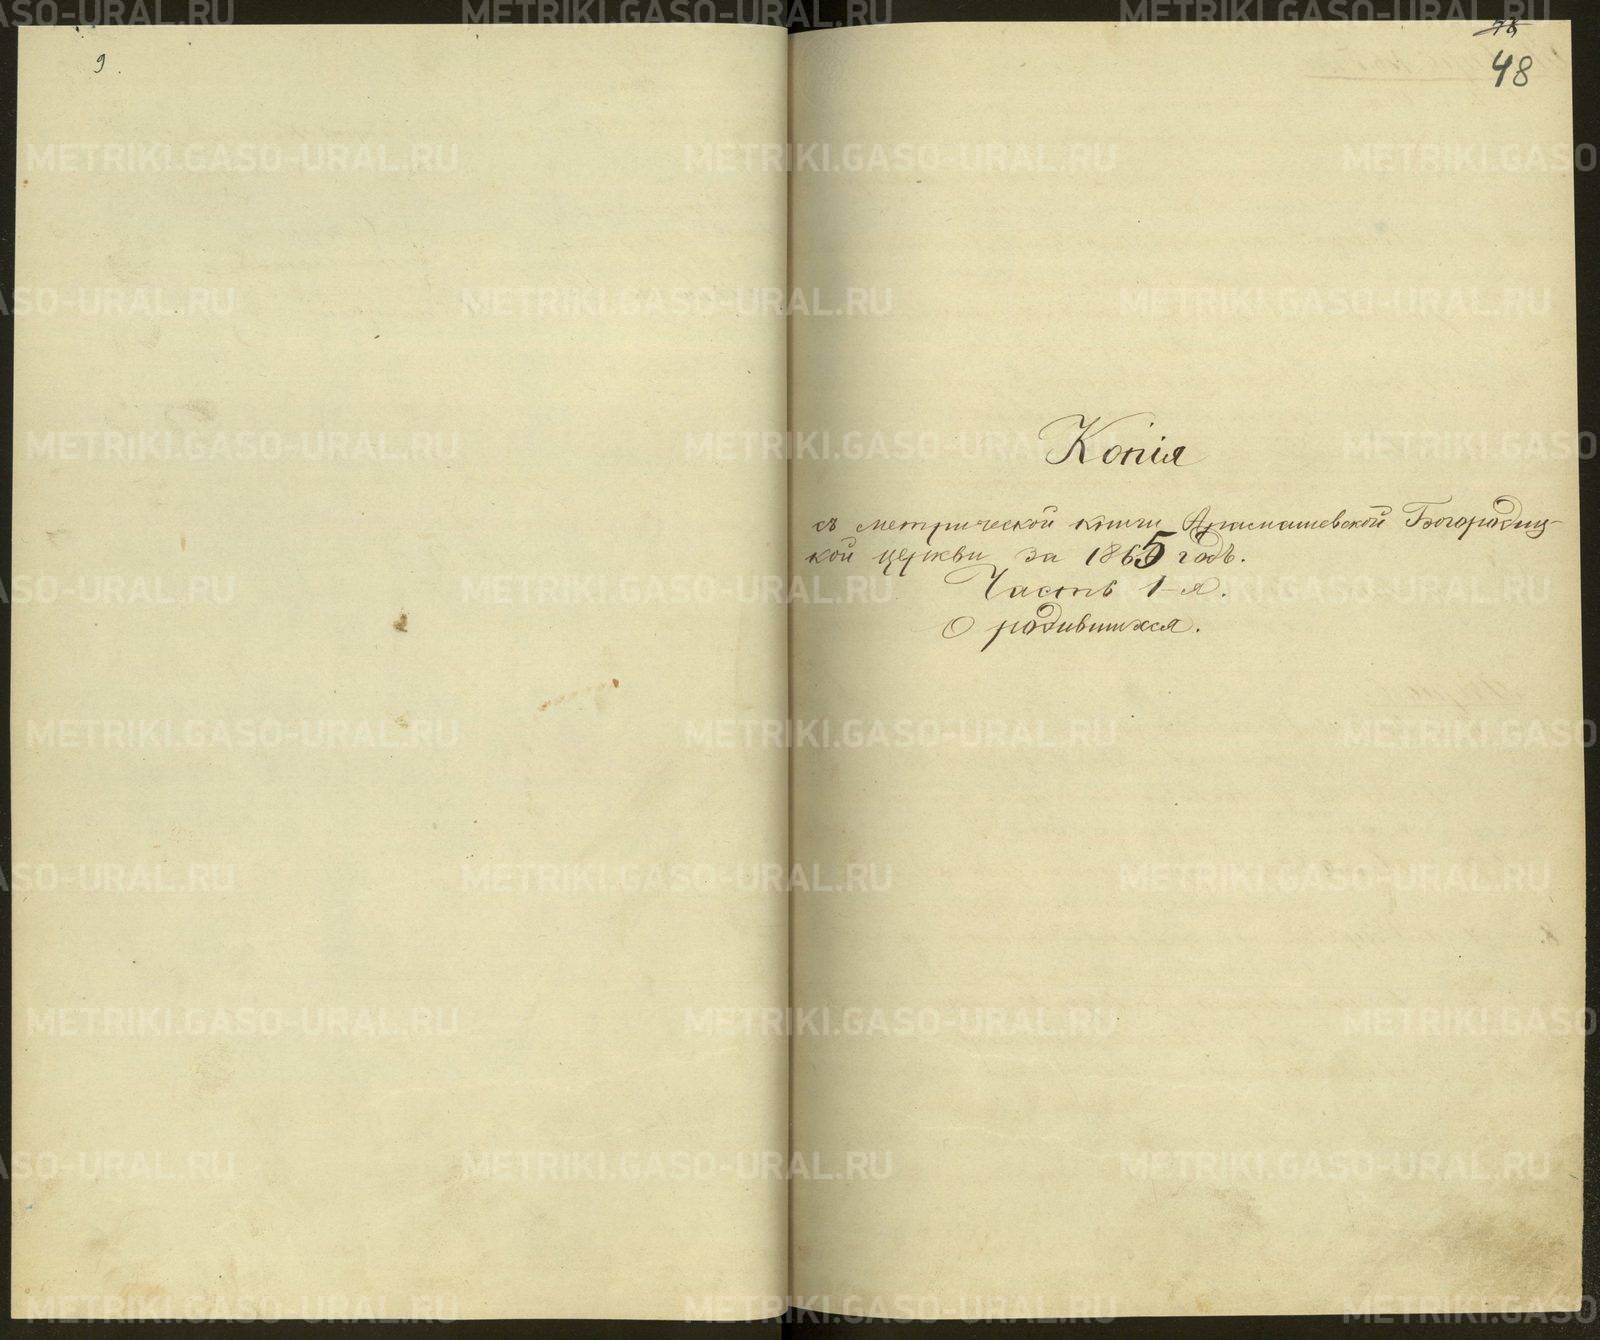 9
48
Копія
съ метрической книги Арамашевской Богородиц-
кой церкви за 1865 годъ.
Часть 1-я.
О родившихся.
METRIKI.GASO-URAL.RU